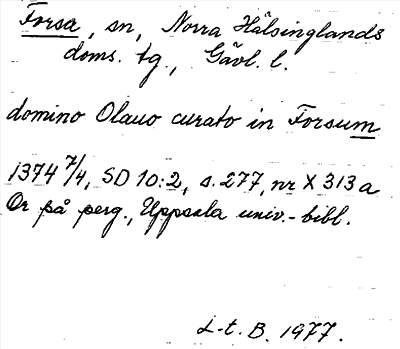 Forsa, sn, Norra Hälsinglands
doms. tg., Gävl. l.
domino Olauo curato in Forsum
1374 7/4, SD 10:2, s. 277, nr X 313 a
Or på perg., Uppsala univ.-bibl.
L-t. B. 1977.